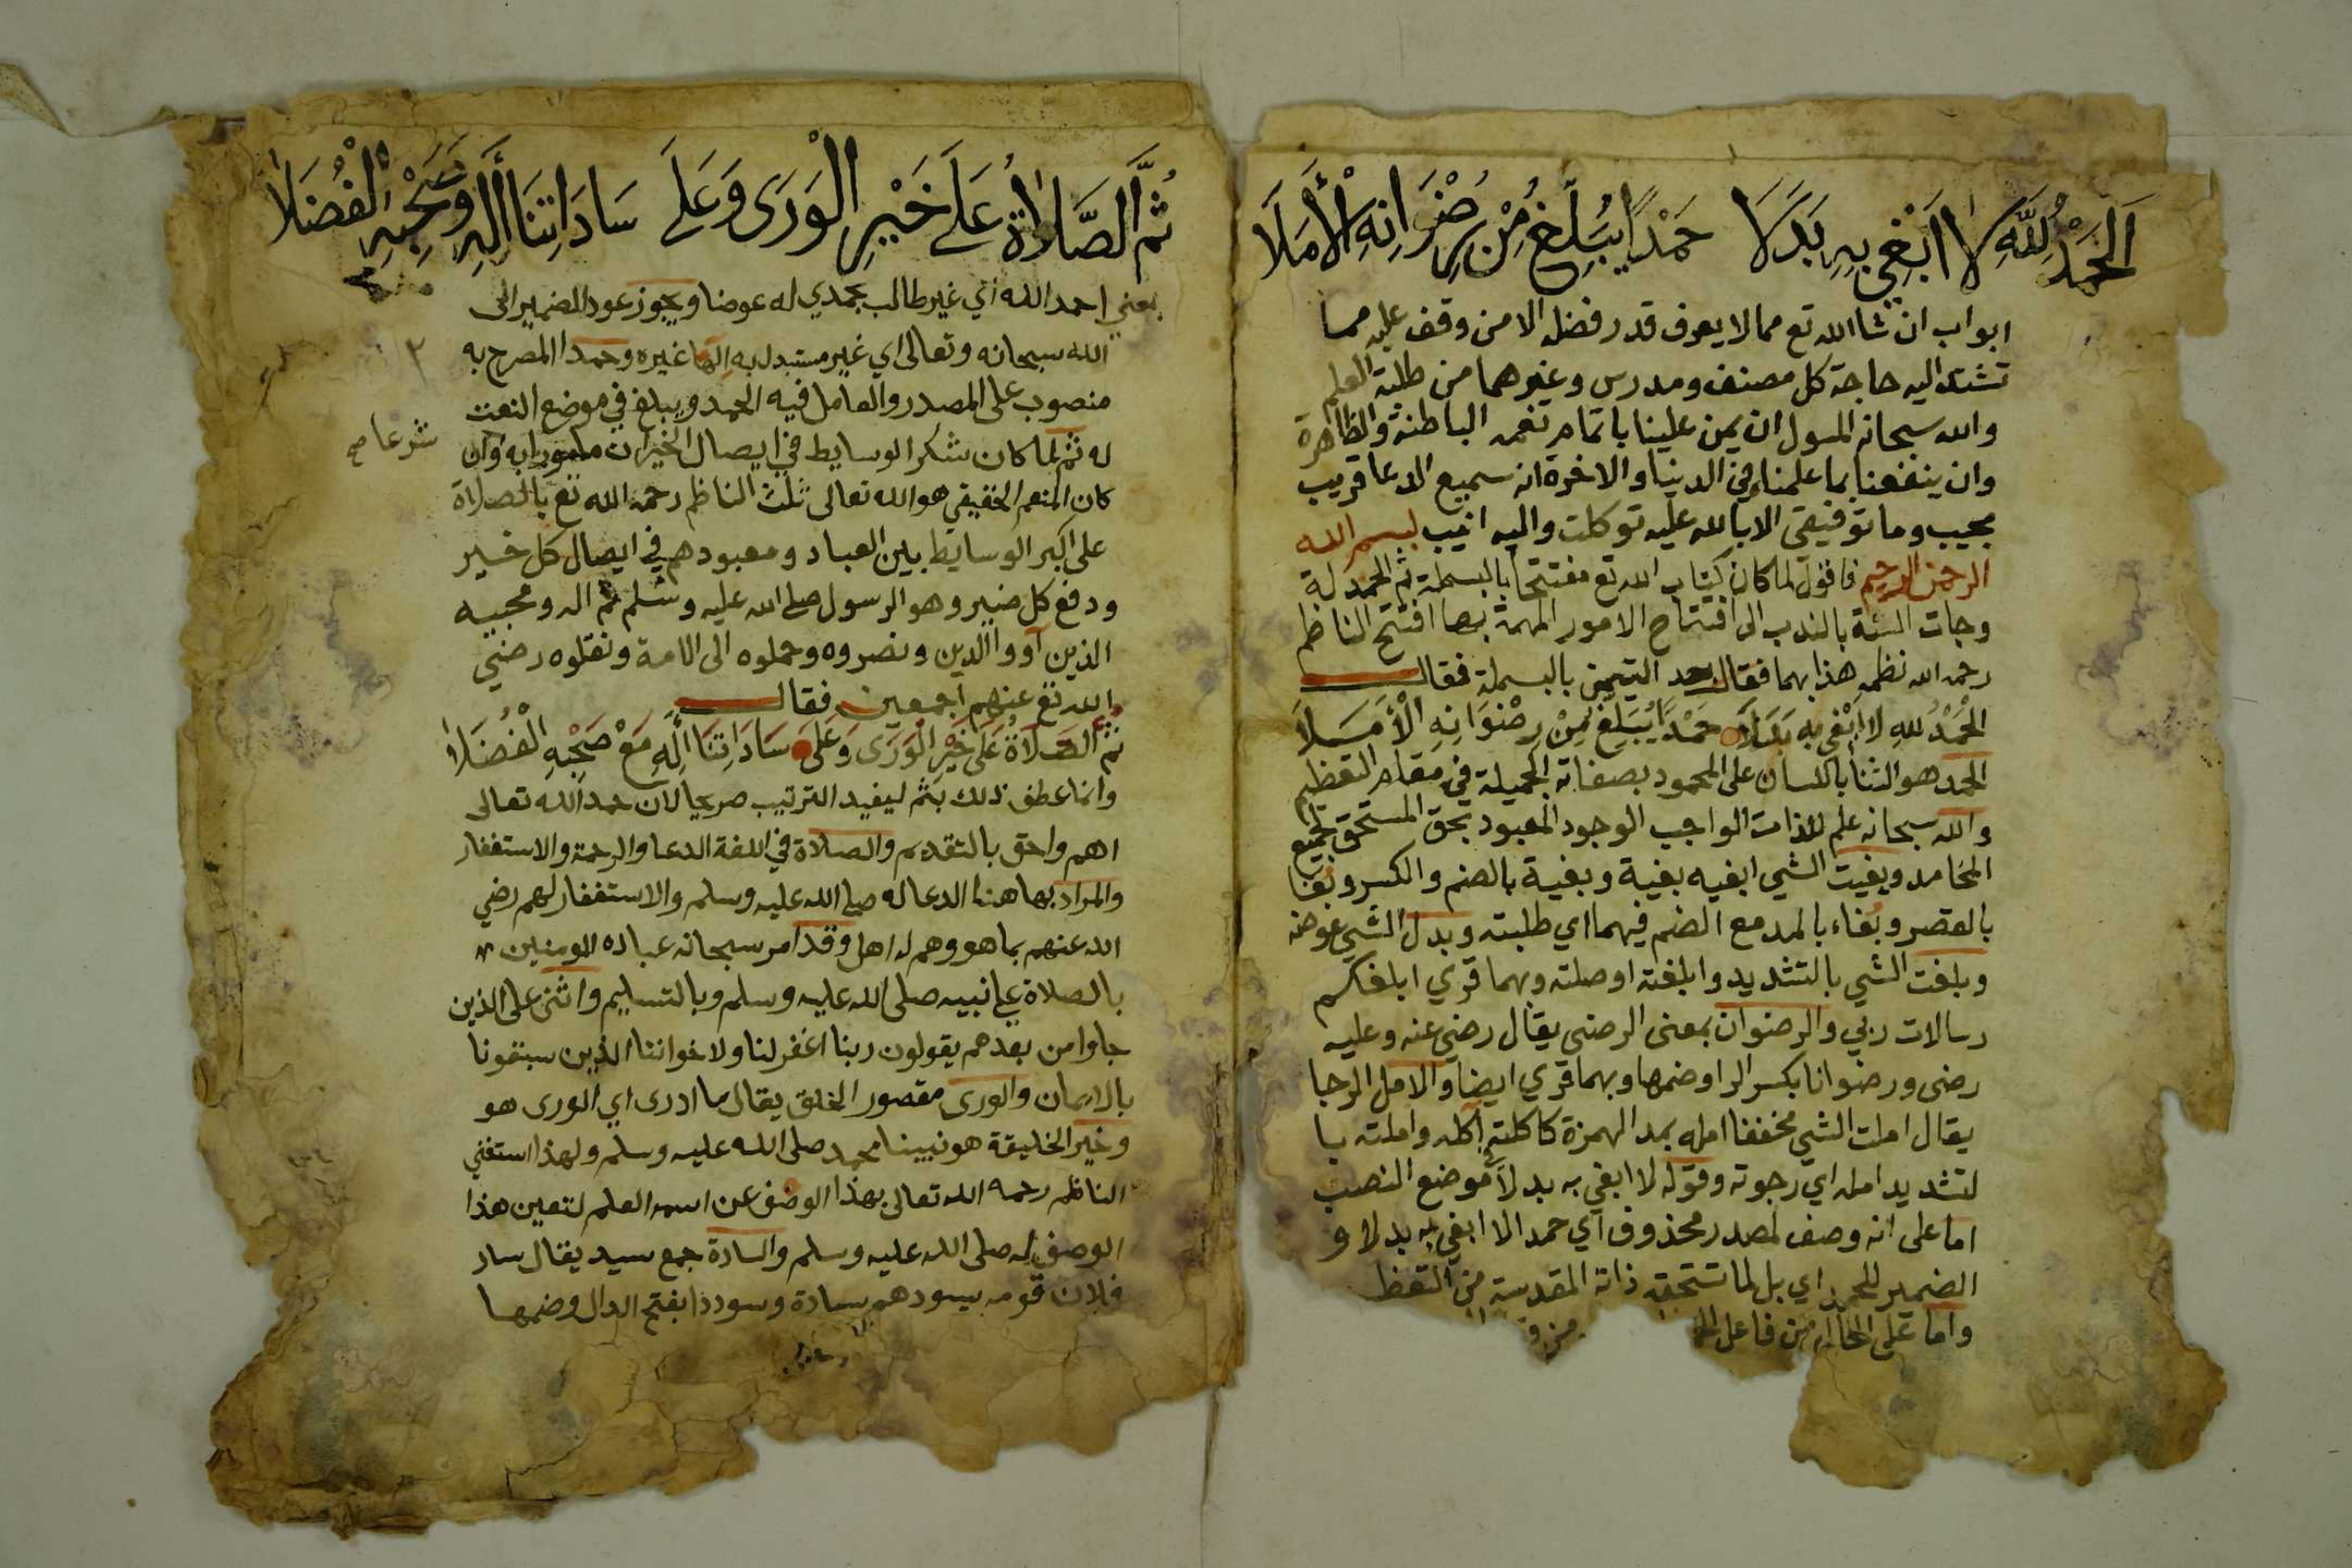 اَلْحَمْدُ لِلَّهِ لَا اَبْغِي بِهِ بَدَلَا حَمْدًا يُبَلِّغُ مِنْ رِضْوَانِهِ الْأَمَلَا
ابواب ان شا الله تع مما لا يعرف قدر فضله الا من وقف عليه مما
تشتد اليه حاجة كل مصنف ومدرس وغيرهما من طلبة العلم
والله سبحانه المسول ان يمن علينا باتمام نعمه الباطنة والظاهرة
وان ينفعنا بما علمنا في الدنيا والاخرة انه سميع الدعا قريب
مجيب وما توفيقي الا بالله عليه توكلت واليه انيب بسم الله
الرحمن الرحيم فاقول لما كان كتاب الله تع مفتتحا بالبسملة ثم الحمدلة
وجات السنة بالندب الى افتتاح الامور المهمة بهما افتتح الناظم
رحمه الله نظمه هذا بهما فقال بعد التيمن بالبسملة فقال
الْحَمْدُ لِلهِ لَا اَبْغِي بِهِ بَدَلَا حَمْدًا يُبَلِّغُ مِنْ رِضْوَانِهِ الْأَمَلَا
الحمد هو الثنا باللسان على المحمود بصفاته الجميلة في مقام التعظيم
والله سبحانه علم للذات الواجب الوجود المعبود بحق المستحق لجميع
المحامد وبغيت الشي ابغيه بغية وبغية بالضم والكسر وبُغا
بالقصر وبُغاء بالمد مع الضم فيهما اي طلبته وبدل الشي عوضه
وبلغت الشي بالتشديد وابلغته اوصلته وبهما قري ابلغكم
رسالات ربي والرضوان بمعنى الرضى يقال رضي عنه وعليه
رضى ورضوانا بكسر الرا وضمها وبهما قري ايضا والامل الرجا
يقال املت الشي مخففا امله بمد الهمزة كاكلته آكله واملته با
لتشديد امله اي رجوته وقوله لا ابغي به بدلا موضع النصب
اما على انه وصف لمصدر محذوف اي حمدا لا ابغي به بدلا و
الضمير للحمد اي بل لما تستحقه ذاته المقدسة من التعظ
واما على الحال من فاعل
ثُمَّ الصَّلَاةُ عَلَى خَيْرِ الْوَرَى وَعَلَى سَادَاتِنَا أَلِهِ وَصَحْبِهِ الْفُضَلَا
يعني احمد الله اني غير طالب بحمدي له عوضا ويجوز عود الضمير الى
الله سبحانه وتعالى اي غير مستبدل به الها غيره وحمدا المصرح به
منصوب على المصدر والعامل فيه الحمد ويبلغ في موضع النعت
له ثم لما كان شكر الوسايط في ايصال الخيرات مامورا به وان
شرعا صح
كان المنعم الحقيقي هو الله تعالى ثلث الناظم رحمه الله تع بالصلاة
على اكبر الوسايط بين العباد ومعبودهم في ايصال كل خير
ودفع كل ضير وهو الرسول صلى الله عليه وسلم ثم اله ومحبيه
الذين آووا الدين ونصروه وحملوه الى الامة ونقلوه رضي
الله تع عنهم اجمعين فقال
ثُمَّ الصَّلَاةُ عَلَى خَيْرِ الْوَرَى وَعَلَى سَادَاتِنَا أَلِهِ مَعْ صَحْبِهِ الْفُضَلَا
وانما عطف ذلك بثم ليفيد الترتيب صريحا لان حمد الله تعالى
اهم واحق بالتقديم والصلاة في اللغة الدعا والرحمة والاستغفار
والمراد بها هنا الدعا له صلى الله عليه وسلم والاستغفار لهم رضي
الله عنهم بما هو وهم له اهل وقد امر سبحانه عباده المومنين
بالصلاة على نبيه صلى الله عليه وسلم وبالتسليم واثنى على الذين
جاوا من بعدهم يقولون ربنا اغفر لنا ولاخواننا الذين سبقونا
بالايمان والورى مقصور الخلق يقال ما ادرى اي الورى هو
وخير الخليقة هو نبينا محمد صلى الله عليه وسلم ولهذا استغني
الناظم رحمه الله تعالى بهذا الوصف عن اسمه العلم لتعين هذا
الوصف له صلى الله عليه وسلم والسادة جمع سيد يقال ساد
فلان قومه يسودهم سيادة وسوددا بفتح الدال وضمها